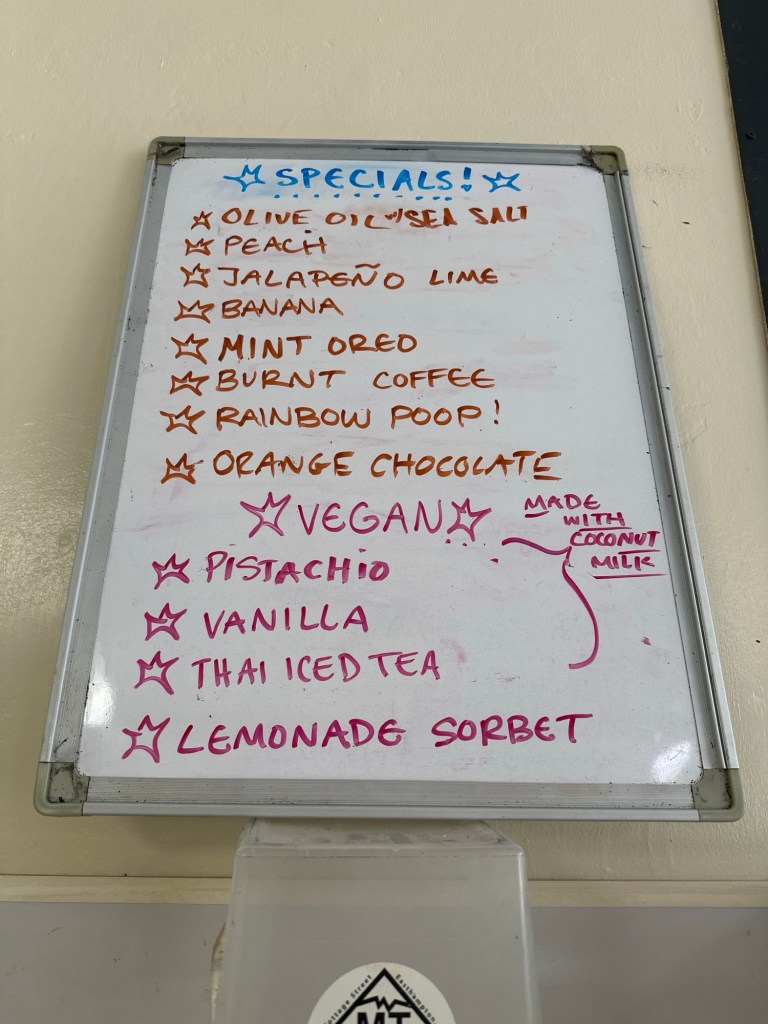 SPECIALS!
OLIVE OIL w/SEA SALT
PEACH
JALAPEÑO LIME
BANANA
MINT OREO
BURNT COFFEE
RAINBOW POOP!
ORANGE CHOCOLATE
VEGAN
MADE
WITH
COCONUT
MILK
PISTACHIO
VANILLA
THAI ICED TEA
LEMONADE SORBET
Cottage Street Easthampton
MT